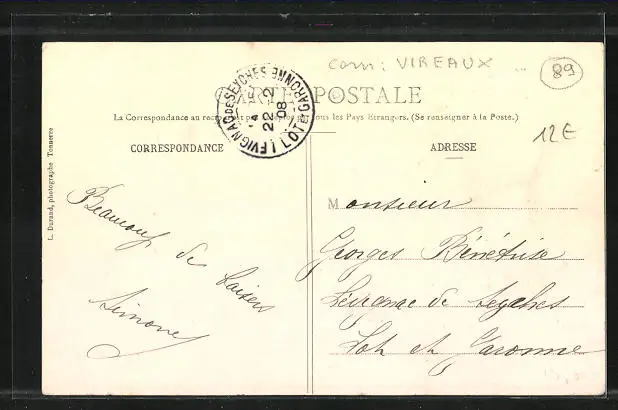 com: VIREAUX
89
CARTE POSTALE
La Correspondance au rec pas tous les Pays Étrangers. (Se renseigner à la Poste.)
12E
LEVIGNAC DE SEYCHES LOT ET GARONNE
22 -2
08
CORRESPONDANCE
ADRESSE
L. Durand, photographe Tonnerre
Beaucoup de baisers
Simone
Monsieur
Georges Bénétrise
Levignac de Seyches
Lot et Garonne